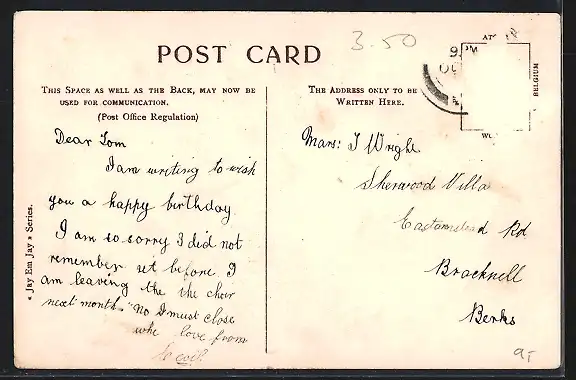 3.50
POST CARD
THIS SPACE AS WELL AS THE BACK, MAY NOW BE
USED FOR COMMUNICATION.
(Post Office Regulation)
THE ADDRESS ONLY TO BE
WRITTEN HERE.
BELGIUM
« Jay Em Jay » Series.
Dear Tom
I am writing to wish
you a happy birthday
I am so sorry I did not
remember it before. I
am leaving the the choir
next month. No I must close
love from
Cecil.
Mars: T Wright
Sherwood Villa
Eastamstead Rd
Bracknell
Berks